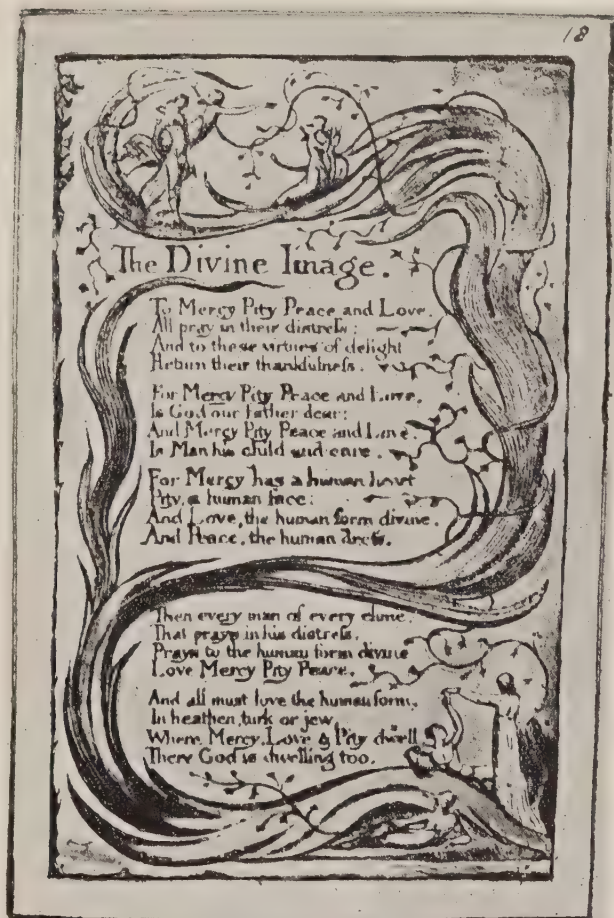 18
The Divine Image.
To Mercy Pity Peace and Love.
All pray in their distreſs:
And to these virtues of delight
Return their thankfulneſs.
For Mercy Pity Peace and Love,
Is God our father dear:
And Mercy Pity Peace and Love.
Is Man his child and care.
For Mercy has a human heart
Pity, a human face:
And Love, the human form divine.
And Peace, the human dreſs.
Then every man of every clime.
That prays in his distreſs.
Prays to the human form divine
Love Mercy Pity Peace.
And all must love the human form,
In heathen, turk or jew.
Where Mercy, Love & Pity dwell
There God is dwelling too.